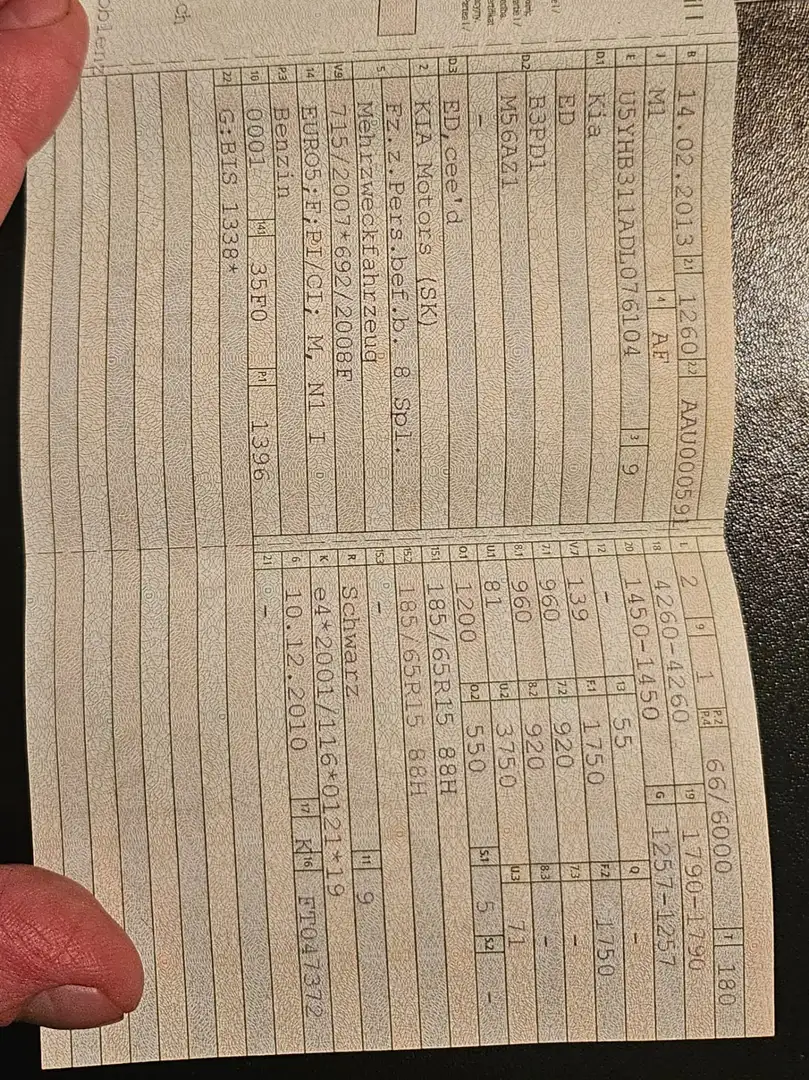 B 14.02.2013 2.1 1260 2.2 AAU000591
J M1 4 AF
E U5YHB311ADL076104 3 9
D.1 Kia
ED
D.2 B3PD1
M56AZ1
-
D.3 ED,cee'd
2 KIA Motors (SK)
5 Fz.z.Pers.bef.b. 8 Spl.
Mehrzweckfahrzeug
V.9 715/2007*692/2008F
14 EURO5;F;PI/CI; M, N1 I
P.3 Benzin
10 0001 14.1 35F0 P.1 1396
22 G:BIS 1338*
L 2 9 1 P.2 P.4 66/6000 T 180
18 4260-4260 19 1790-1790
20 1450-1450 G 1257-1257
12 - 13 55 Q -
V.7 139 F.1 1750 F.2 1750
7.1 960 7.2 920 7.3 -
8.1 960 8.2 920 8.3 -
U.1 81 U.2 3750 U.3 71
O.1 1200 O.2 550 S.1 5 S.2 -
15.1 185/65R15 88H
15.2 185/65R15 88H
15.3 -
R Schwarz 11 9
K e4*2001/116*0121*19
6 10.12.2010 17 K 16 FT047372
21 -
ch